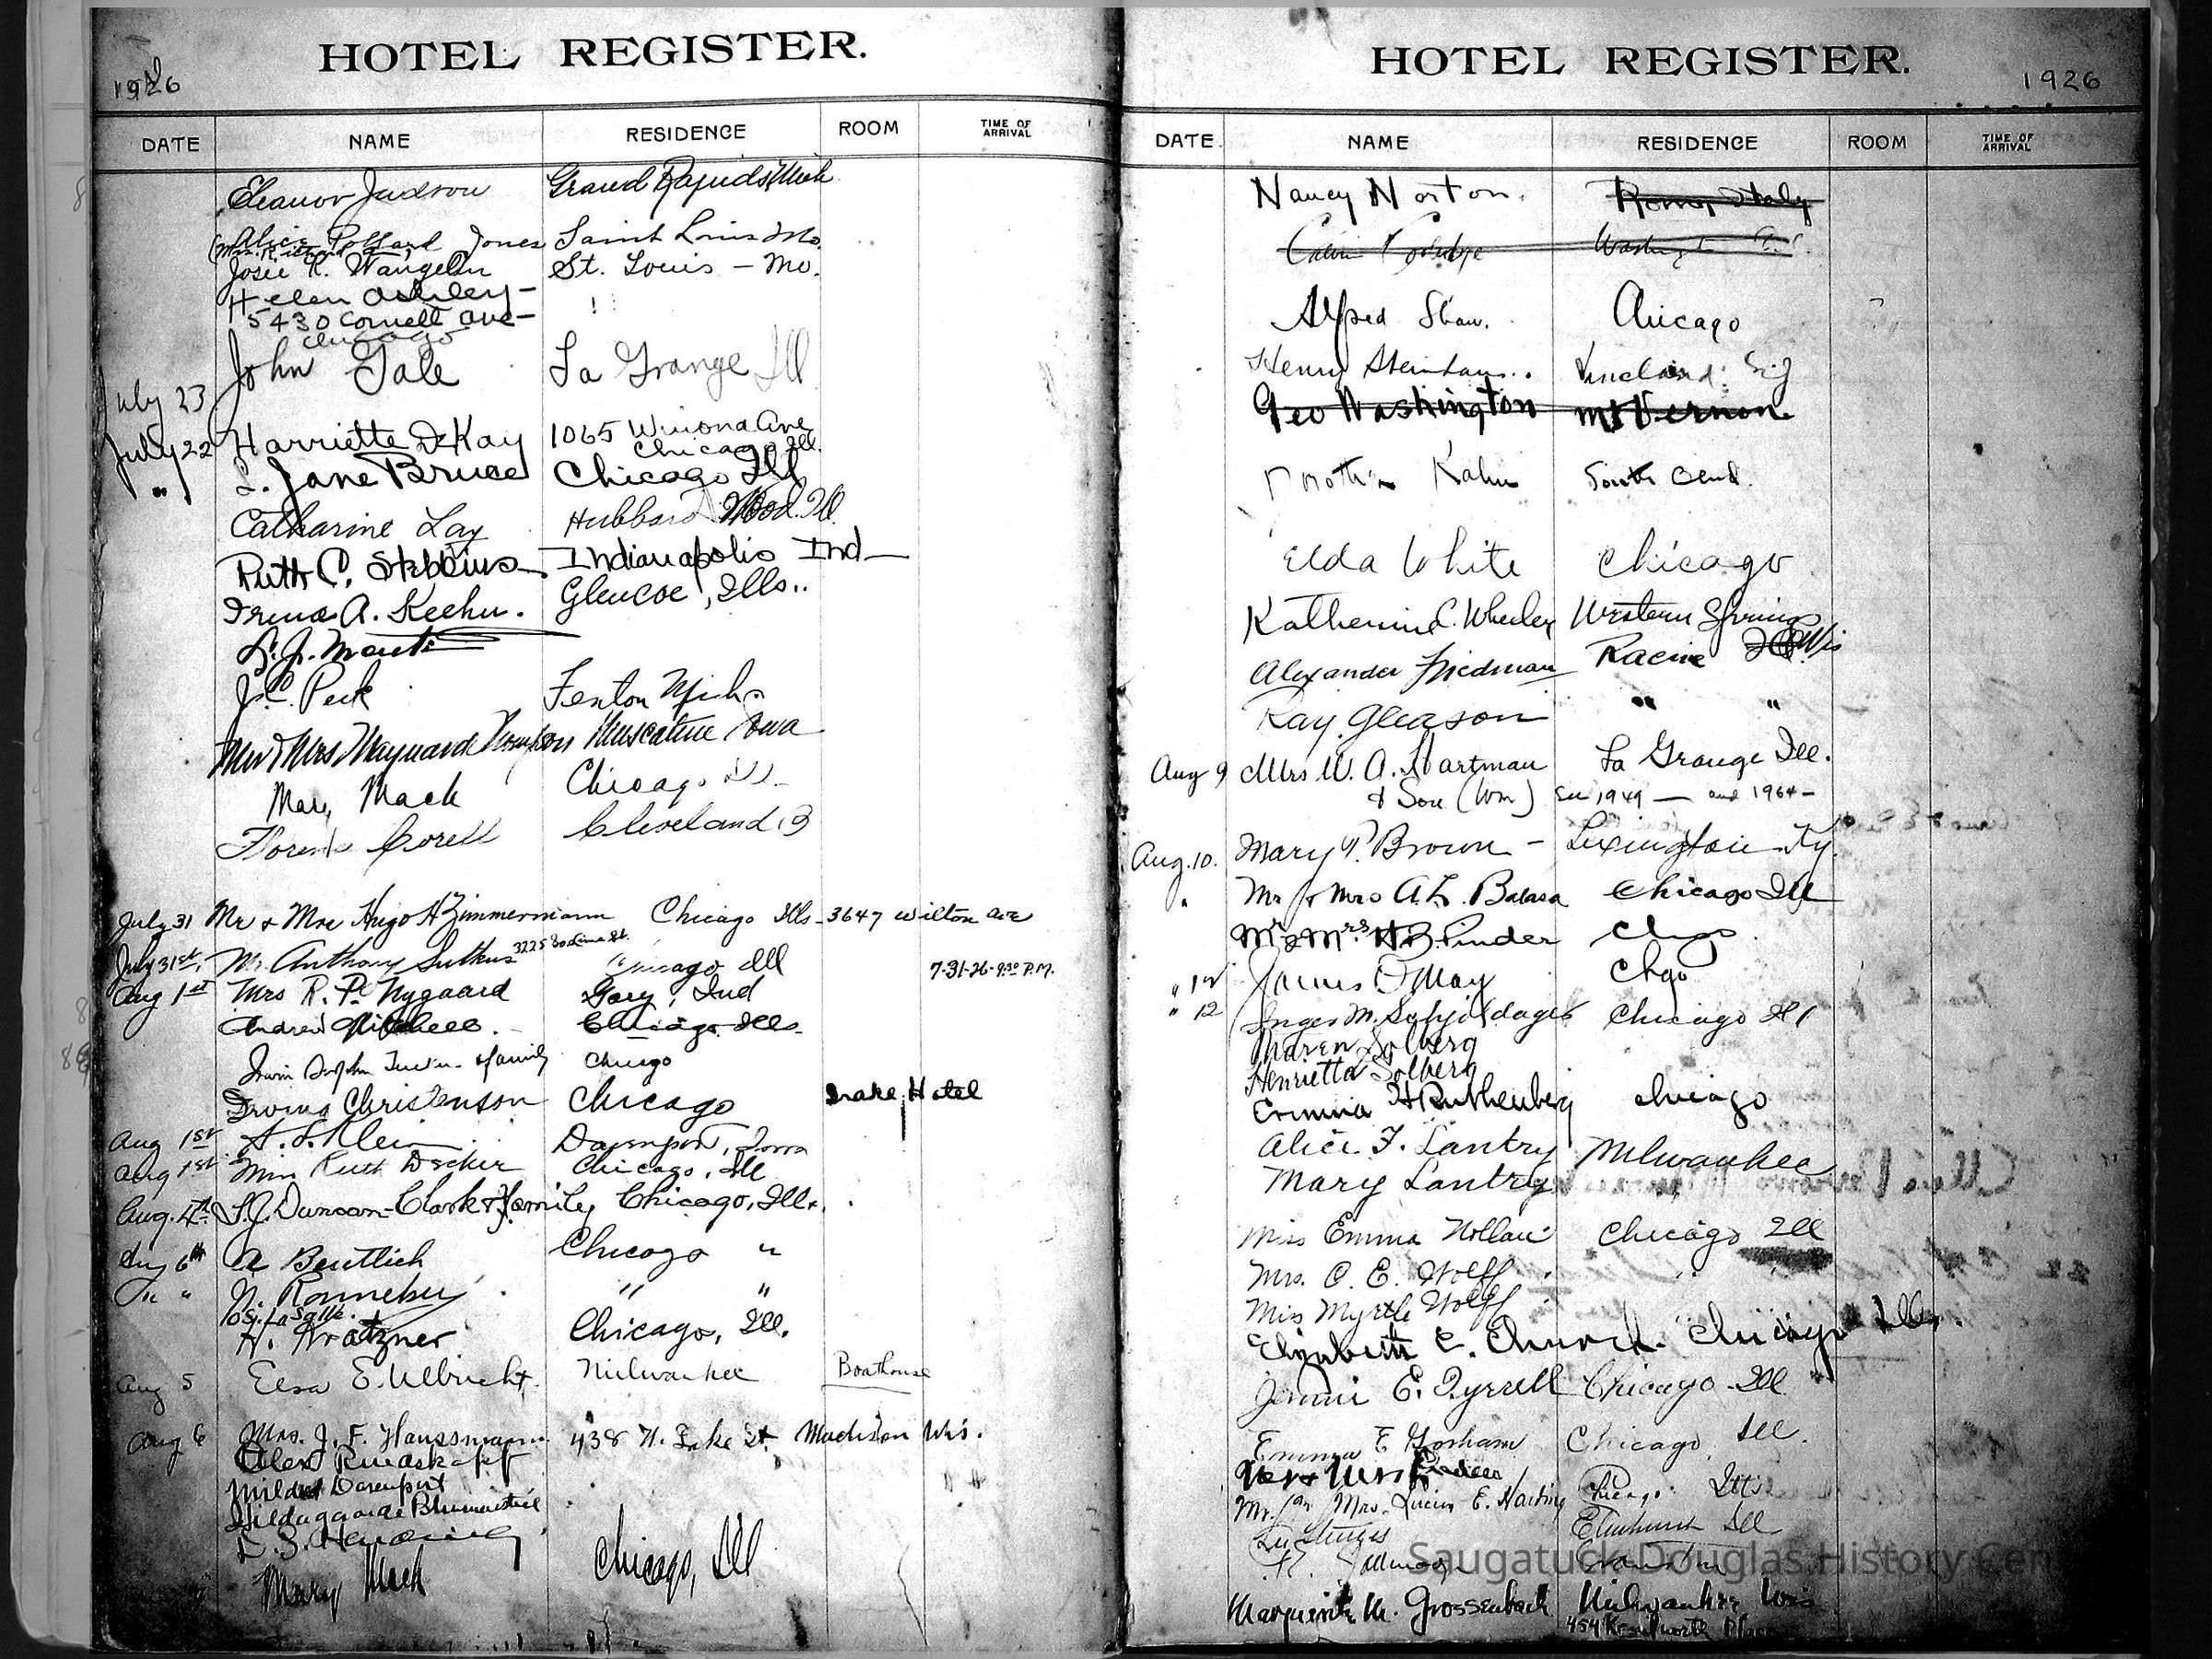 1926
HOTEL REGISTER.
DATE NAME RESIDENCE ROOM TIME OF ARRIVAL
Eleanor Judson Grand Rapids Mich
Alice Pollard Jones Saint Louis Mo.
(Mrs. Richard
Josie R. Wangelin St. Louis - Mo.
Helen Ashley -
5430 Cornell Ave -
Chicago
John Gale La Grange Ill
July 23
July 22 Harriette DeKay 1065 Winona Ave
Chicago Ill.
" S. Jane Bruce Chicago Ill
Catharine Lay Hubbard Wood. Ill.
Ruth C. Stebbins Indianapolis Ind
Irma A. Keehn. Glencoe, Ills..
J.C. Peck Fenton Mich
Mr & Mrs Maynard Thompson Muscatine Iowa
Mary Mack Chicago Ill.
Florence Corell Cleveland, O
July 31 Mr & Mrs Hugo H Zimmermann Chicago Ills - 3647 Wilton Ave
July 31st. Mr. Anthony Sutkus 3225 So. Lime St. Chicago Ill 7-31-26-9:30 P.M.
Aug 1st Mrs R. P. Nygaard Gary, Ind
Andrew Mitchell. Chicago Ills.
Family Chicago
Irving Christenson Chicago Drake Hotel
Aug 1st A. S. Klein Davenport, Iowa
Aug 1st Miss Ruth Decker Chicago, Ill
Aug. 4th S.J. Duncan-Clark & Family Chicago, Ill.
Aug 6th A Bentlich Chicago "
" " N. Ronneburg " "
10 S. LaSalle.
H. Kratzner Chicago, Ill.
Aug 5 Elsa E. Ulbricht Milwaukee Boathouse
Aug 6 Mrs. J. F. Haussmann 438 N. Lake St. Madison Wis.
Mildred Davenport
Mary Mack Chicago, Ill
HOTEL REGISTER.
1926
DATE. NAME RESIDENCE ROOM TIME OF ARRIVAL
Nancy Norton. Rome, Italy
Calvin Coolidge Washington D.C.
Alfred Shaw. Chicago
Henry Steinhaus..
Geo Washington Mt Vernon
Kahn South Bend.
Elda White Chicago
Katherine C. Wheeler Western Springs
Alexander Friedman Racine Wis
Ray Gleason " "
Aug 9 Mrs W. A. Hartman La Grange Ill.
& Son (Wm) See 1949 — and 1964 —
Aug. 10. Mary P. Brown - Lexington Ky.
" Mr & Mrs A.L. Babasa Chicago Ill
Mr & Mrs H.B. Pinder Chgo
" 12 James O May Chgo
" 12 Inger M. Schjoldager Chicago Ill
Maren Solberg
Henrietta Solberg
Emma H Ruthenberg Chicago
Alice F. Lantry Milwaukee
Mary Lantry "
Miss Emma Nollau Chicago Ill
Mrs. C. E. Wolff " "
Miss Myrtle Wolff
Elizabeth E. Church. Chicago Ills.
Jennie E. Tyrrell Chicago Ill
Emma E Gorham Chicago Ill.
Mr. and Mrs. Lucius E. Harting Chicago Ills
Elmhurst Ill
Evanston
Marguerite M. Grossenbach Milwaukee Wis
454 Kenilworth Place
Saugatuck-Douglas History Cen